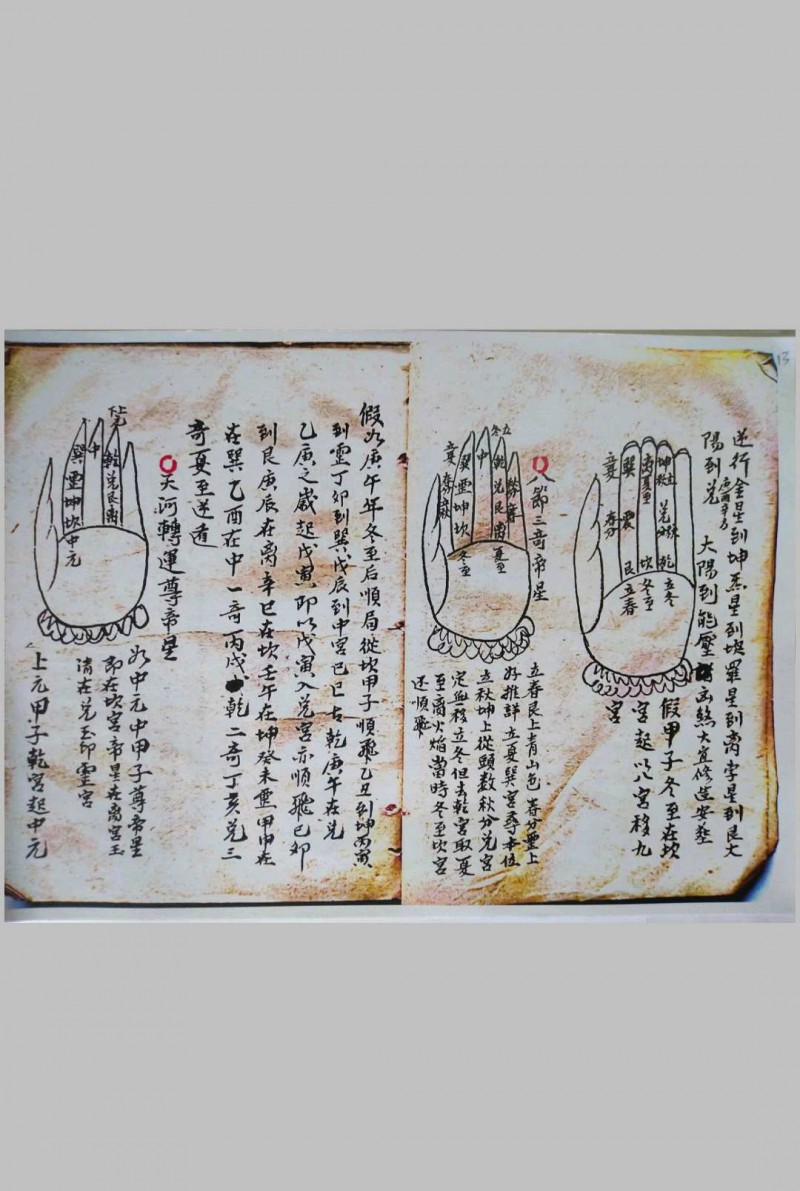 13
逆行金星到坤炁星到坎羅星到离孛星到艮大
陽到兌
大陽到能壓
凶煞大宜修造安葬
假甲子冬至在坎
宮起以八宮移九
宮
坤 立秋
离 夏至
巽
立夏
兌 秋分
震
春分
乾 立冬
坎 冬至
艮 立春
八節三奇帝星
立春艮上青山色 春分震上
好推詳 立夏巽宮尋本位
立秋坤上從頭数秋分兌宮
定無移立冬但去乾宮取夏
至离火焰當時冬至坎宮
还順飛
立冬
乾兌艮离
夏至
中
巽震坤坎
冬至
假如庚午年冬至后順局從坎甲子順飛乙丑到坤丙寅
到震丁卯到巽戊辰到中宮己巳去乾庚午在兌
乙庚之歲起戊寅即以戊寅入兌宮亦順飛己卯
到艮庚辰在离辛巳在坎壬午在坤癸未震甲申在
在巽乙酉在中一奇丙戌乾二奇丁亥兌三
奇夏至逆看
天河轉運尊帝星
上元
乾兌艮离
中
巽震坤坎
中元
如中元中甲子尊帝星
即在坎宮帝星在离宮玉
清在兌玉印震宮
上元甲子乾宮起中元